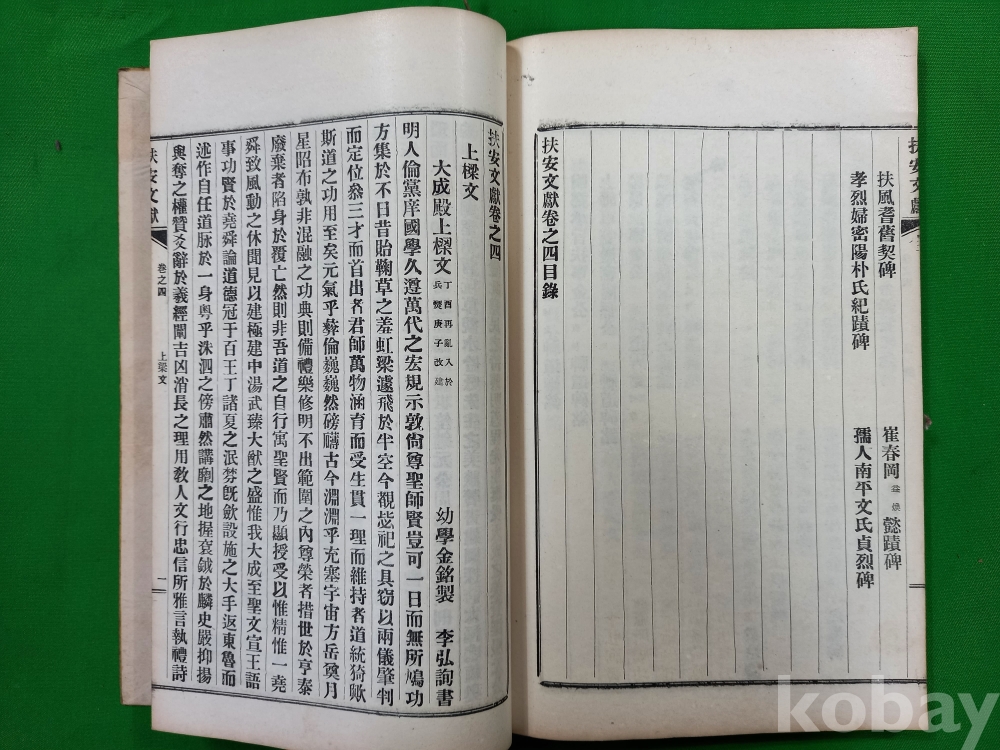 扶安文獻
扶風耆舊契碑
崔春岡 益煥 懿蹟碑
孝烈婦密陽朴氏紀蹟碑
孺人南平文氏貞烈碑
扶安文獻卷之四目錄
扶安文獻卷之四
上樑文
大成殿上樑文 丁酉再亂入於兵燹庚子改建
幼學金銘製 李弘詢書
明人倫黨庠國學久遵萬代之宏規示敦尙尊聖師賢豈可一日而無所鳩功
方集於不日昔貽鞠草之羞虹梁遽飛於半空今覩毖祀之具窃以兩儀肇判
而定位叅三才而首出者君師萬物涵育而受生貫一理而維持者道統猗歟
斯道之功用至矣元氣乎彝倫巍巍然磅礴古今淵淵乎充塞宇宙方岳奠月
星昭布孰非混融之功典則備禮樂修明不出範圍之內尊榮者措世於亨泰
廢棄者陷身於覆亡然則非吾道之自行寓聖賢而乃顯授受以惟精惟一堯
舜致風動之休聞見以建極建中湯武臻大猷之盛惟我大成至聖文宣王語
事功賢於堯舜論道德冠于百王丁諸夏之泯棼旣歛設施之大手返東魯而
述作自任道脉於一身粤乎洙泗之傍肅然講劘之地握袞鉞於麟史嚴抑揚
與奪之權贊爻辭於羲經闡吉凶消長之理用敎人文行忠信所雅言執禮詩
扶安文獻
卷之四
上梁文
一
kobay